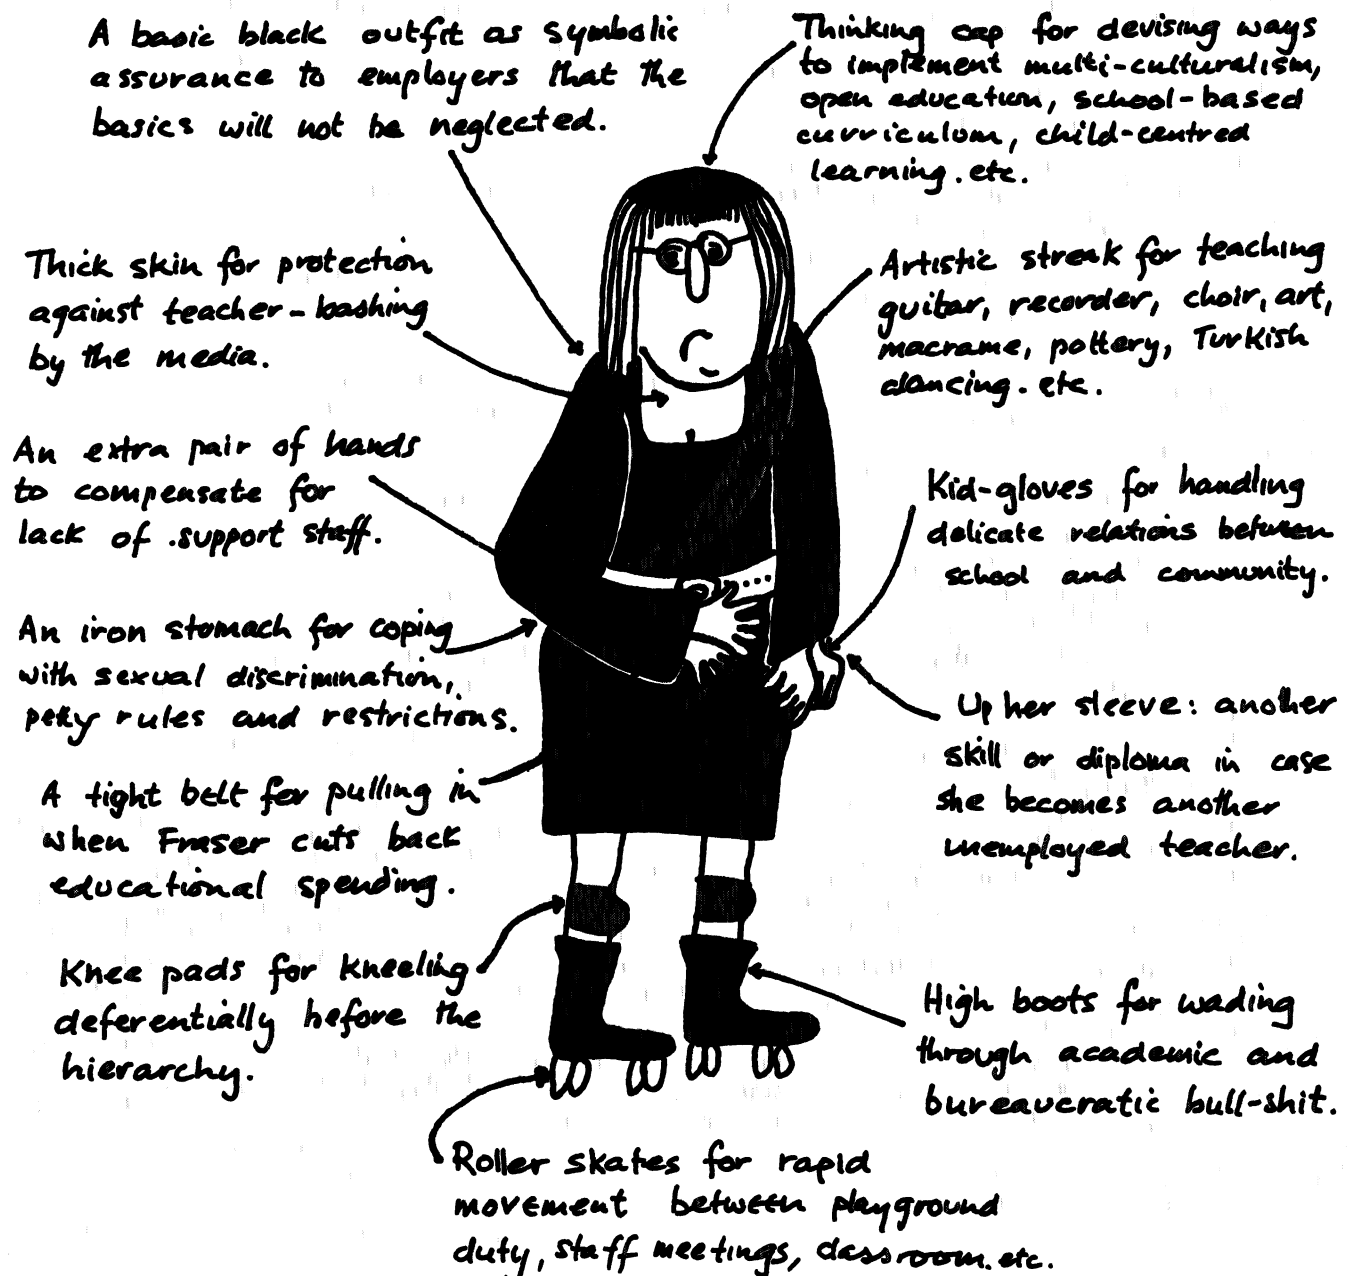 A basic black outfit as symbolic
assurance to employers that the
basics will not be neglected.
Thinking cap for devising ways
to implement multi-culturalism,
open education, school-based
curriculum, child-centred
learning. etc.
Thick skin for protection
against teacher-bashing
by the media.
Artistic streak for teaching
guitar, recorder, choir, art,
macrame, pottery, Turkish
dancing. etc.
An extra pair of hands
to compensate for
lack of support staff.
Kid-gloves for handling
delicate relations between
school and community.
An iron stomach for coping
with sexual discrimination,
petty rules and restrictions.
Up her sleeve: another
skill or diploma in case
she becomes another
unemployed teacher.
A tight belt for pulling in
when Fraser cuts back
educational spending.
Knee pads for kneeling
deferentially before the
hierarchy.
High boots for wading
through academic and
bureaucratic bull-shit.
Roller skates for rapid
movement between playground
duty, staff meetings, classroom. etc.